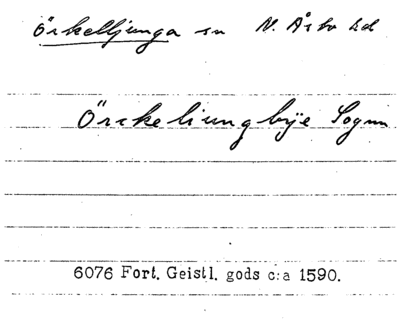 Örkelljunga sn N. Åsbo hd
Örckeliungbÿe Sognn
6076 Fort. Geistl. gods c:a 1590.